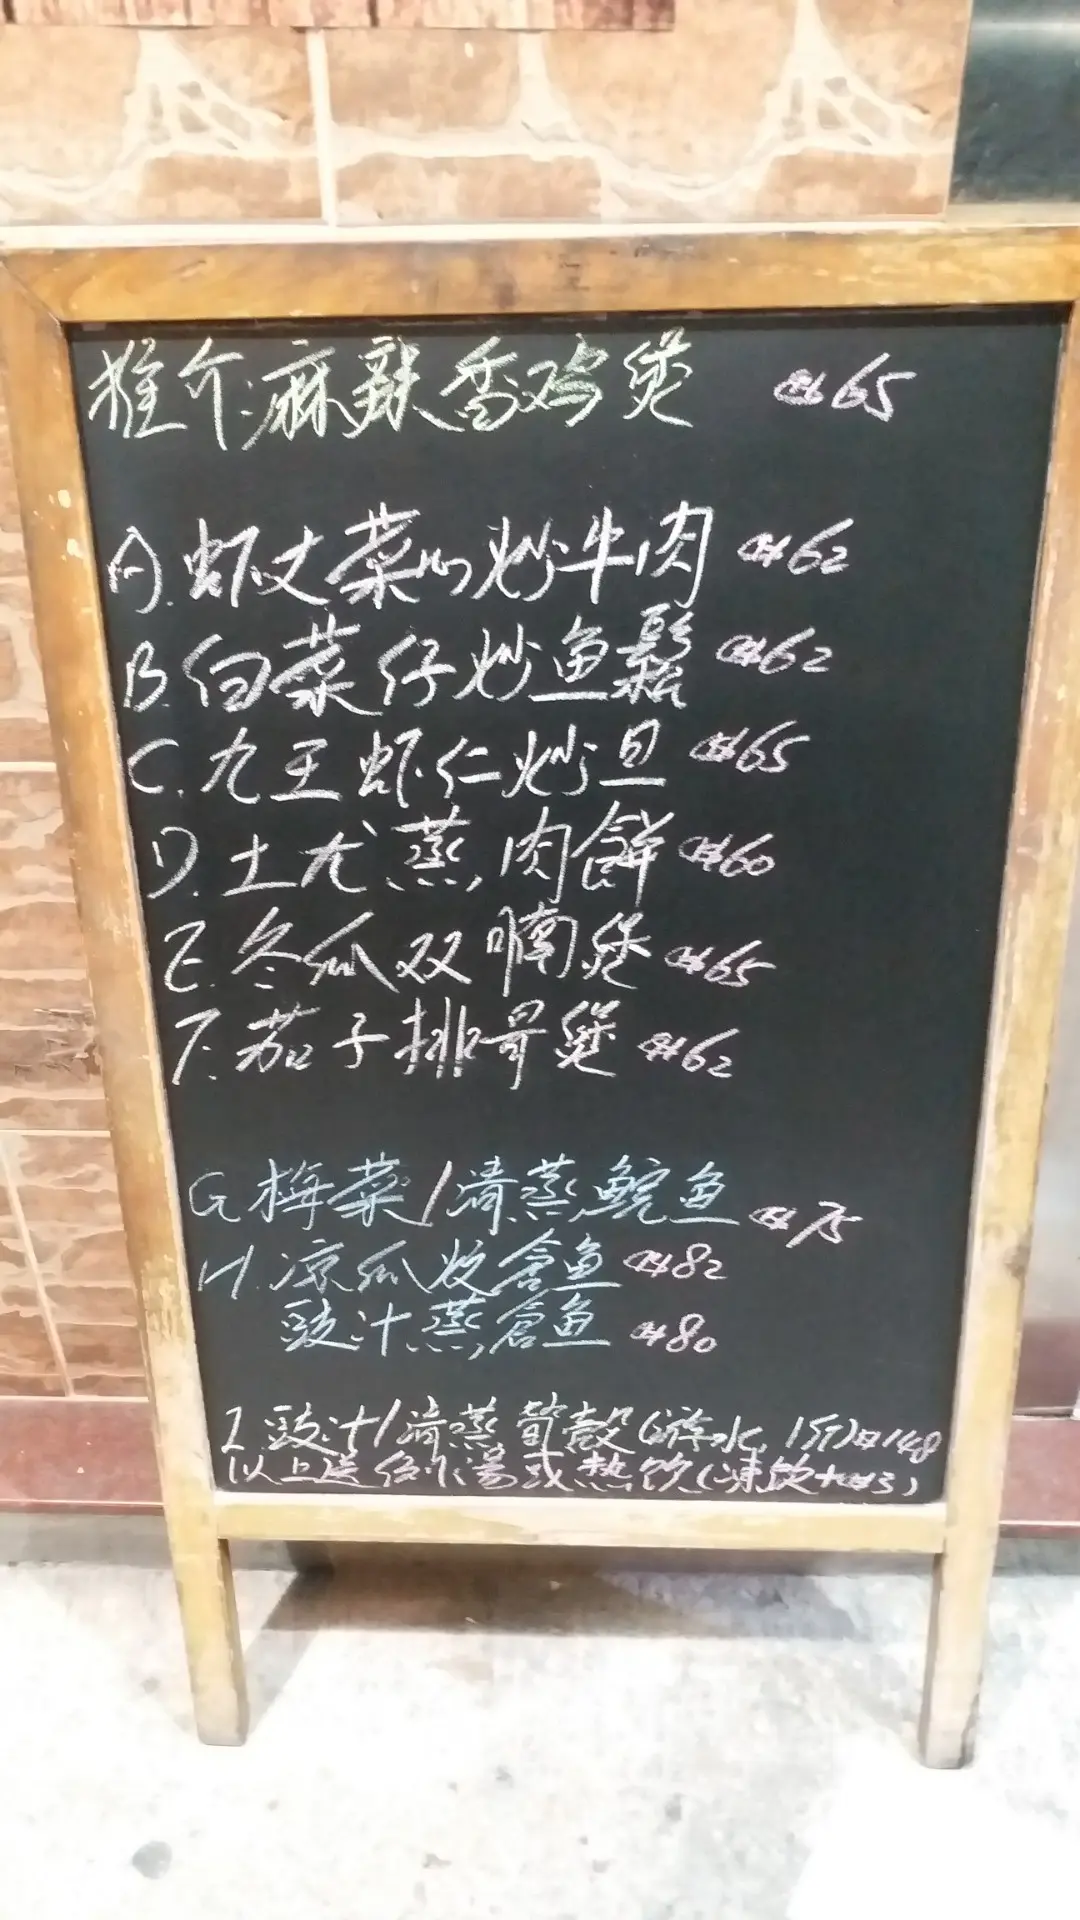 推介:麻辣香鸡煲 $65
A).虾丈菜心炒牛肉 $62
B.白菜仔炒鱼鬆 $62
C.九王虾仁炒旦 $65
D.土尤蒸肉餅 $60
E.冬瓜双喃煲 $65
F.茄子排骨煲 $62
G.梅菜/清蒸鲩鱼 $75
H.凉瓜炆倉鱼 $82
豉汁蒸倉鱼 $80
I.豉汁/清蒸筍殼(游水,1斤)$148
以上送 湯或热饮(凍饮+$3)